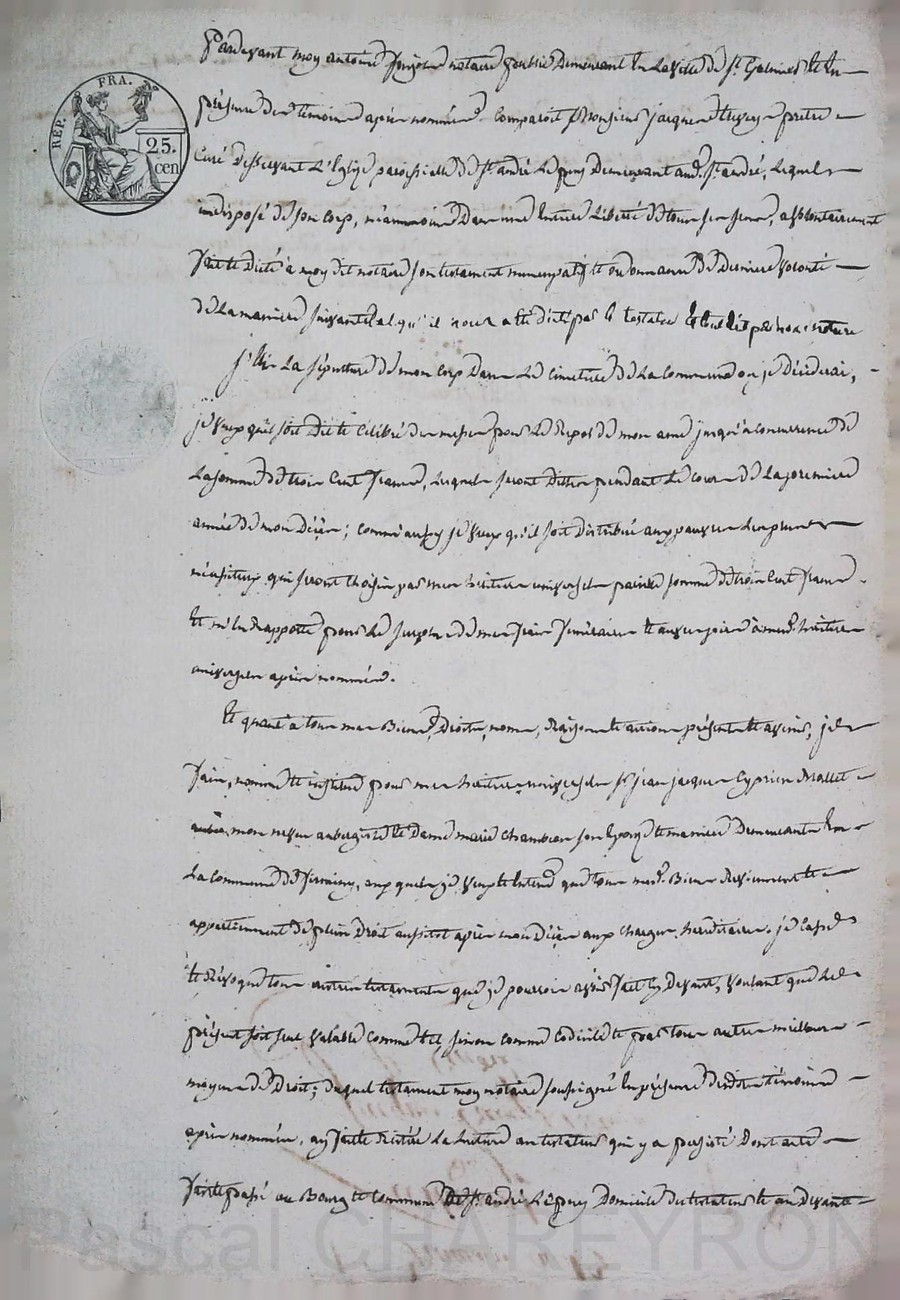 REP. FRA.
25.
cen
Pardevant moy antoine notaire public Demeurant en La ville de St. Galmier et en
présence des témoins après nommés. Comparoit Monsieur jacques pretre
Curé Desservant L'Eglize paroissialle de St. andré Le puy Demeurant aud. St. andré, Lequel
indisposé de son Corp, néanmoins Dans une entiere Liberté de tous ses sens, a volontairement
fait et Dicté à moy dit notaire son testament nuncupatif et ordonnance de Derniere volonté
de La maniere suivante tel qu'il nous a été dicté par le testateur et écrit par nous notaire
j'élis La sépulture de mon Corp Dans Le Cimetiere de La Commune ou je Décéderai,
je veux qu'il soit Dit et Célébré des messes pour Le Repos de mon ame jusqu'à concurrence de
La somme de trois Cent francs, Lesquels seront Dittes pendant Le Cours de La premiere
année de mon Décès; Comme aussy je veux qu'il soit Distribué aux pauvres Les plus
nécessiteux qui seront Choisis par mes héritiers universels pareille somme de trois Cent francs
et m'en Rapporte pour Le surplus de mes frais funéraires et aux a mesd. héritiers
universels après nommés.
Et quant à tous mes Biens, Droits, noms, Raisons et actions présents et avenir, je
fais, nomme et institue pour mes héritiers universels Sr. jean jacques Cyprien Mollet
mon neveu aubergiste et Dame marie Chambeon son Epouze et mariés Demeurants en
La Commune de firminy, auxquels je veux et entend que tous mesd. Biens Reviennent et
appartiennent de plein Droit aussitot après mon Décès aux Charges héréditaires. je Casse
et Révoque tous autres testaments que je pourrois avoir fait Cy Devant, voulant que Le
présent soit seul valable Comme tel, sinon comme Codicile et par tous autres meilleurs
moyens de Droit; Duquel testament moy notaire soussigné en présence desdits témoins
après nommés, ay fait et réitéré La Lecture au testateur qui y a persisté Dont acte
fait et passé au Bourg et Commune de St. andré Le puy Domicile du testateur et an Devant
Pascal CHAREYRON